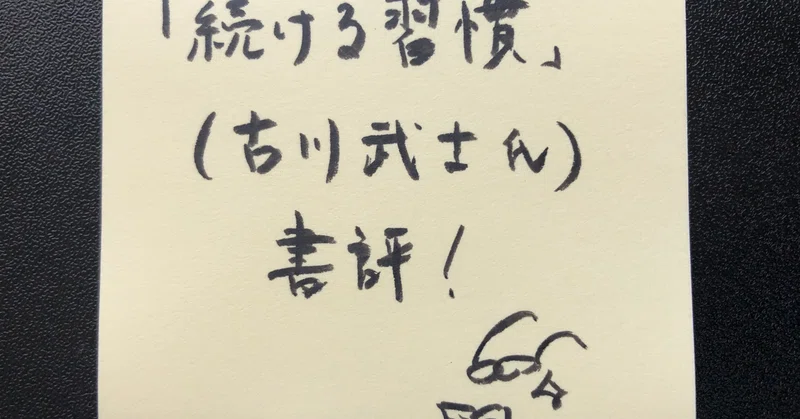 「続ける習慣」
(古川武士氏)
書評！